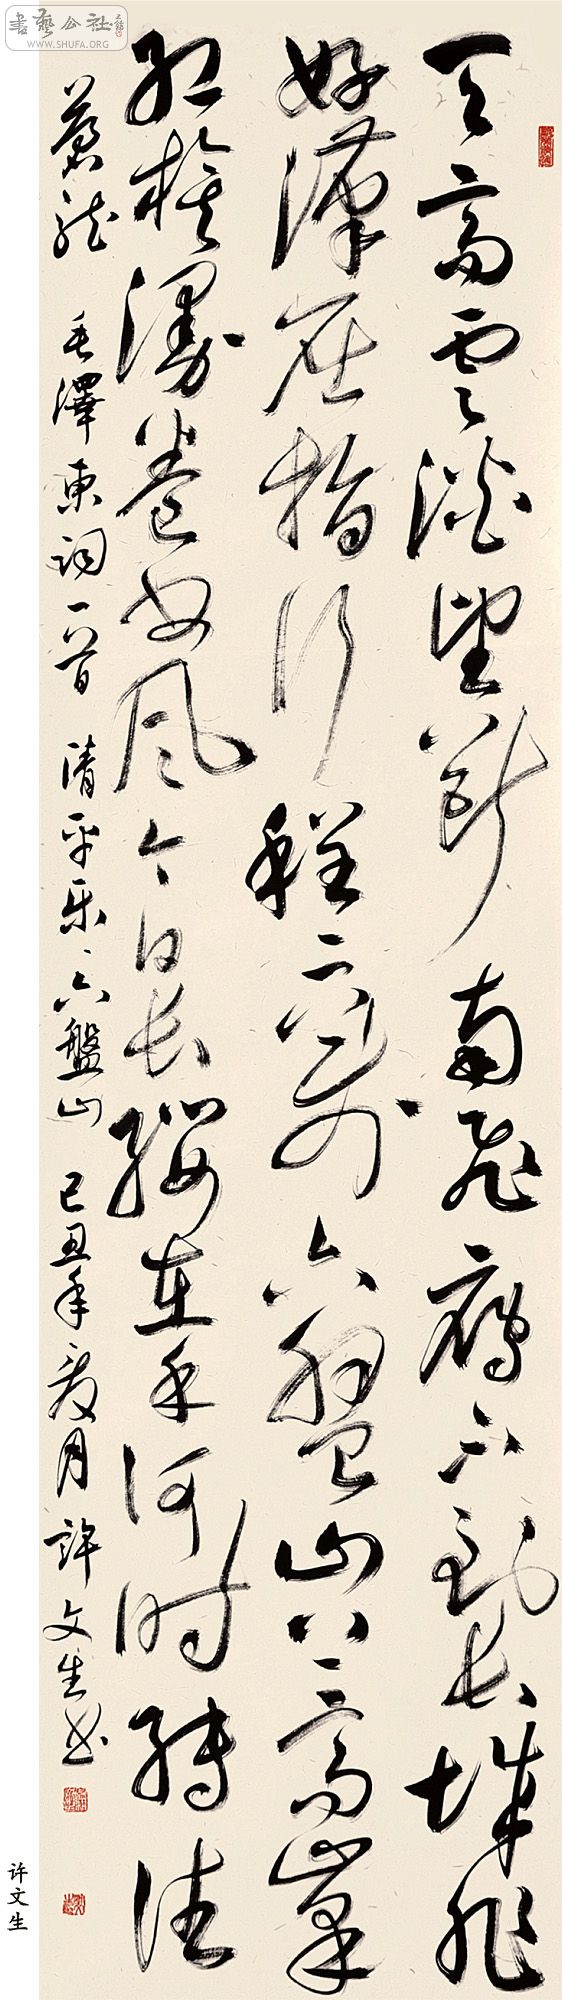 書藝公社
WWW.SHUFA.ORG
天高雲淡望断南飞雁不到长城非
好漢屈指行程二万六盤山上高峯
红旗漫卷西风今日长缨在手何时缚住
蒼龙 毛澤東词一首 清平乐六盤山 己丑年夏月許文生书
许文生